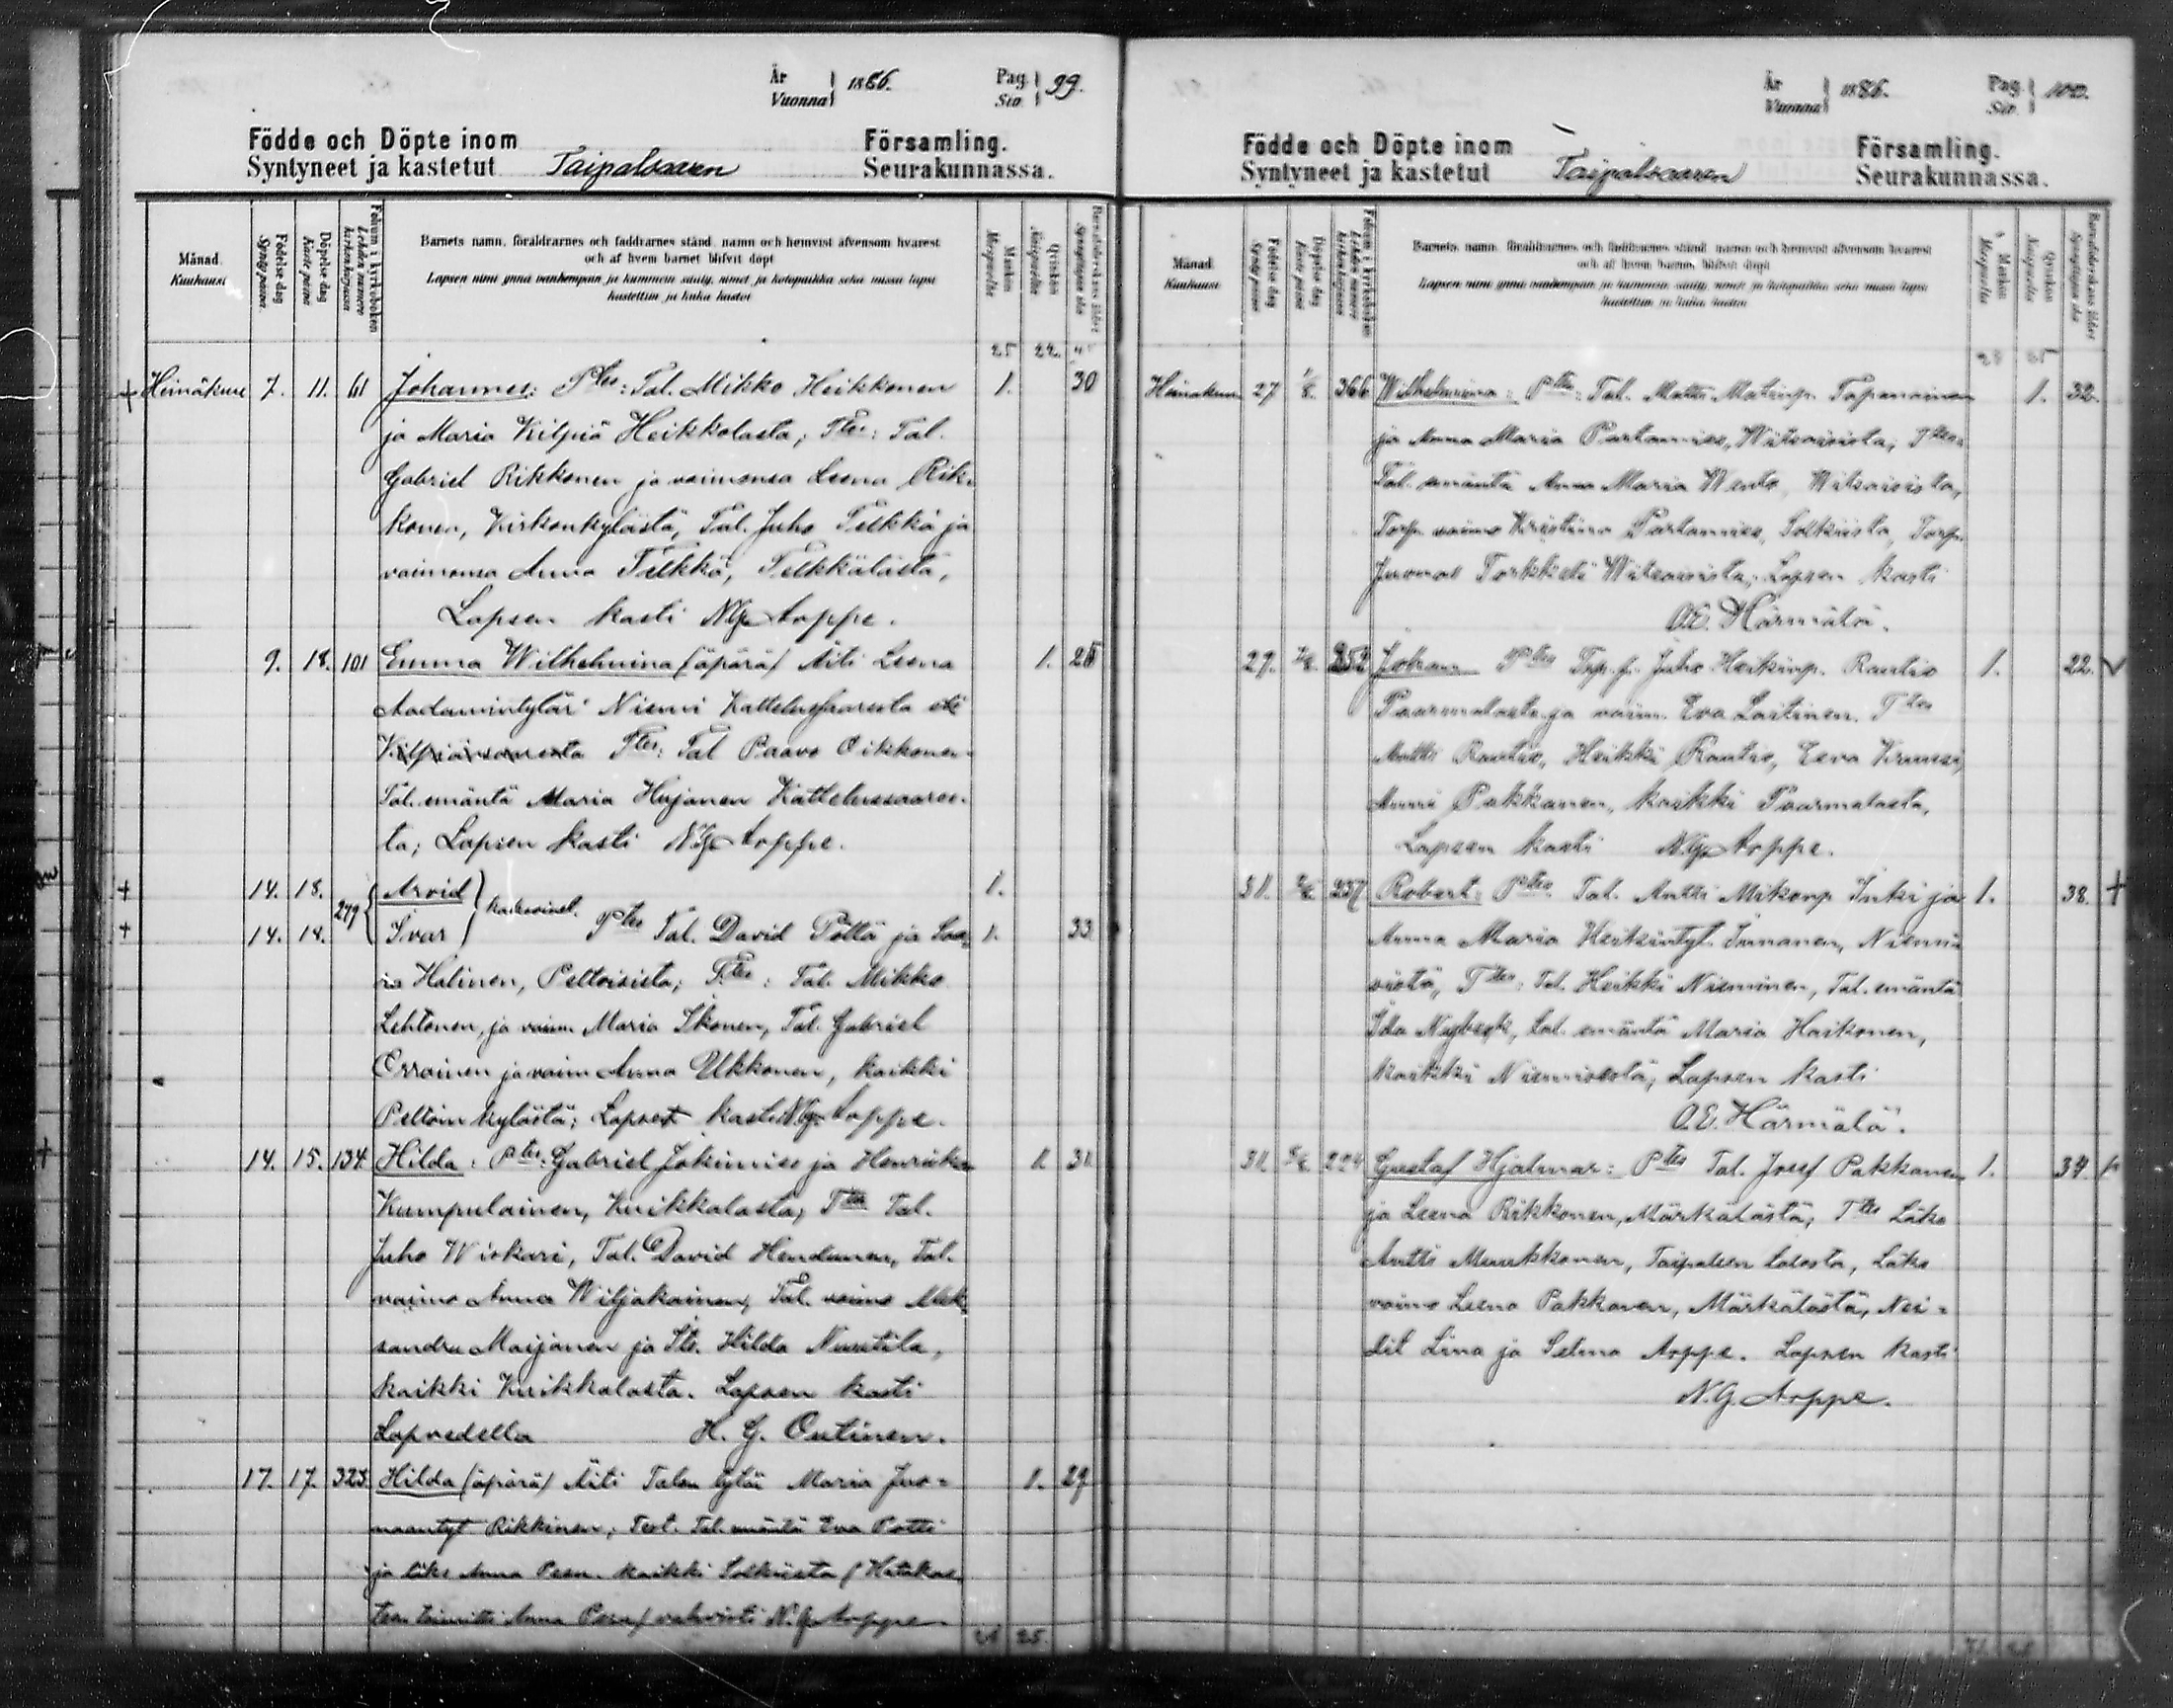 År
Vuonna } 1886. Pag.
Sio } 99.
Födde och Döpte inom Församling.
Syntyneet ja kastetut Taipalsaaren Seurakunnassa.
Månad. Kuukausi
Födelse-dag Syntypäivä.
Döpelse-dag Kastepäivä.
Folium i kyrkoboken Lehden numero kirkonkirjassa
Barnets namn, föräldrarnes och faddrarnes stånd, namn och hemvist äfvensom hvarest
och af hvem barnet blifvit döpt
Lapsen nimi ynnä vanhempain ja kummein sääty, nimet ja kotopaikka sekä missä lapsi
kastettiin ja kuka kastoi
Mankön Miespuolta
Qvinkön Naispuolta
25 22.
+ Heinäkuu 7. 11. 61 Johannes: Ptes: Tal. Mikko Heikkonen 1. 30
ja Maria Kilpiä Heikkolasta; Ttes: Tal.
Gabriel Rikkonen ja vaimonsa Leena Rik-
konen, Kirkonkylästä, Tal. Juho Telkkä ja
vaimonsa Anna Telkkä, Telkkälästä,
Lapsen kasti N.G. Arppe.
9. 18. 101 Emma Wilhelmina (äpärä) Äiti Leena 1.
Aadamintytär Niemi Kattelussaaresta
Ttes: Tal Paavo Oikkonen
Tal. emäntä Maria Hujanen Kattelussaares-
ta; Lapsen kasti N.G. Arppe.
+ 14. 18. 279 { Arvid } kaksoiset. 1.
+ 14. 18. Ivar Ptes Tal. David Pöllä ja 1. 33
Halinen, Peltoisista; Ttes: Tal. Mikko
Lehtonen, ja vaim. Maria Ikonen, Tal. Gabriel
Orrainen ja vaim Anna Ukkonen, kaikki
Peltoin kylästä; Lapset kasti N.G. Arppe.
+ 14. 15. 134 Hilda: Ptes: Gabriel Jokimies ja Henriika 1. 31
Kumpulainen, Kuikkalasta; Ttes Tal.
Juho Wiskari, Tal. David Hendunen, Tal.
vaimo Anna Wiljakainen, Tal. vaimo Alek-
sandra Maijanen ja Hilda
kaikki Kuikkalasta. Lapsen kasti
Lapvedellä H. G. Outinen.
17. 17. 323. Hilda (äpärä) Äiti Talon tytär Maria Juo-
maantyt Rikkinen; Test. Tal. emäntä Eva Potti 1. 29
ja läks Anna Pesu. kaikki Solkiista (Hätäkas-
teen toimitti Anna Pesu) vahvisti N.G. Arppe
25.
År
Vuonna } 1886. Pag.
Sio. } 100.
Födde och Döpte inom Församling.
Syntyneet ja kastetut Taipalsaaren Seurakunnassa.
Månad. Kuukausi
Födelse-dag Syntypäivä
Döpelse-dag Kastepäivä
Folium i kyrkoboken Lehden numero kirkonkirjassa
Barnets namn, föräldrarnes och faddrarnes stånd, namn och hemvist äfvensom hvarest
och af hvem barnet blifvit döpt
Lapsen nimi ynnä vanhempain ja kummein sääty, nimet ja kotopaikka sekä missä lapsi
kastettiin ja kuka kastoi
Mankön Miespuolta
Qvinkön Naispuolta
Heinäkuu 27 1/8. 366 Wilhelmiina: Ptes: Tal. Matti Matinp. Tapanainen 1. 32.
ja Anna Maria Partamies, Witsaisista; Ttes:
Tal. emäntä Anna Maria Wento, Witsaisista,
Torp. vaimo Kristiina Partamies, Solkiista, Torp.
Juomas Torkkeli Witsaisista; Lapsen kasti
O.E. Härmälä.
29. 352 Johan Ptes Torp. p. Juho Heikinp. Rautio 1. 22.
Paarmalasta ja vaim. Eva Laitinen. Ttes
Matti Rautio, Heikki Rautio, Eeva Krunsi,
Anni Pakkanen, kaikki Paarmalasta,
Lapsen kasti N.G. Arppe.
31. 237 Robert: Ptes. Tal. Antti Mikonp. Inki ja 1. 38. +
Anna Maria Heikintyt. Innanen, Niemi-
sistä, Ttes: Tal. Heikki Nieminen, Tal. emäntä
Ida Nyberk, tal. emäntä Maria Haikonen,
kaikki Niemisistä, Lapsen kasti
O.E. Härmälä.
31. Gustaf Hjalmar: Ptes Tal. Josef Pakkanen 1.
ja Leena Rikkonen, Märkälästä, Ttes Läks
Antti Muukkonen, Taipaleen talosta, Läks
vaimo Leena Pakkanen, Märkälästä, Nei-
dit Lina ja Selma Arppe. Lapsen kasti
N.G. Arppe.